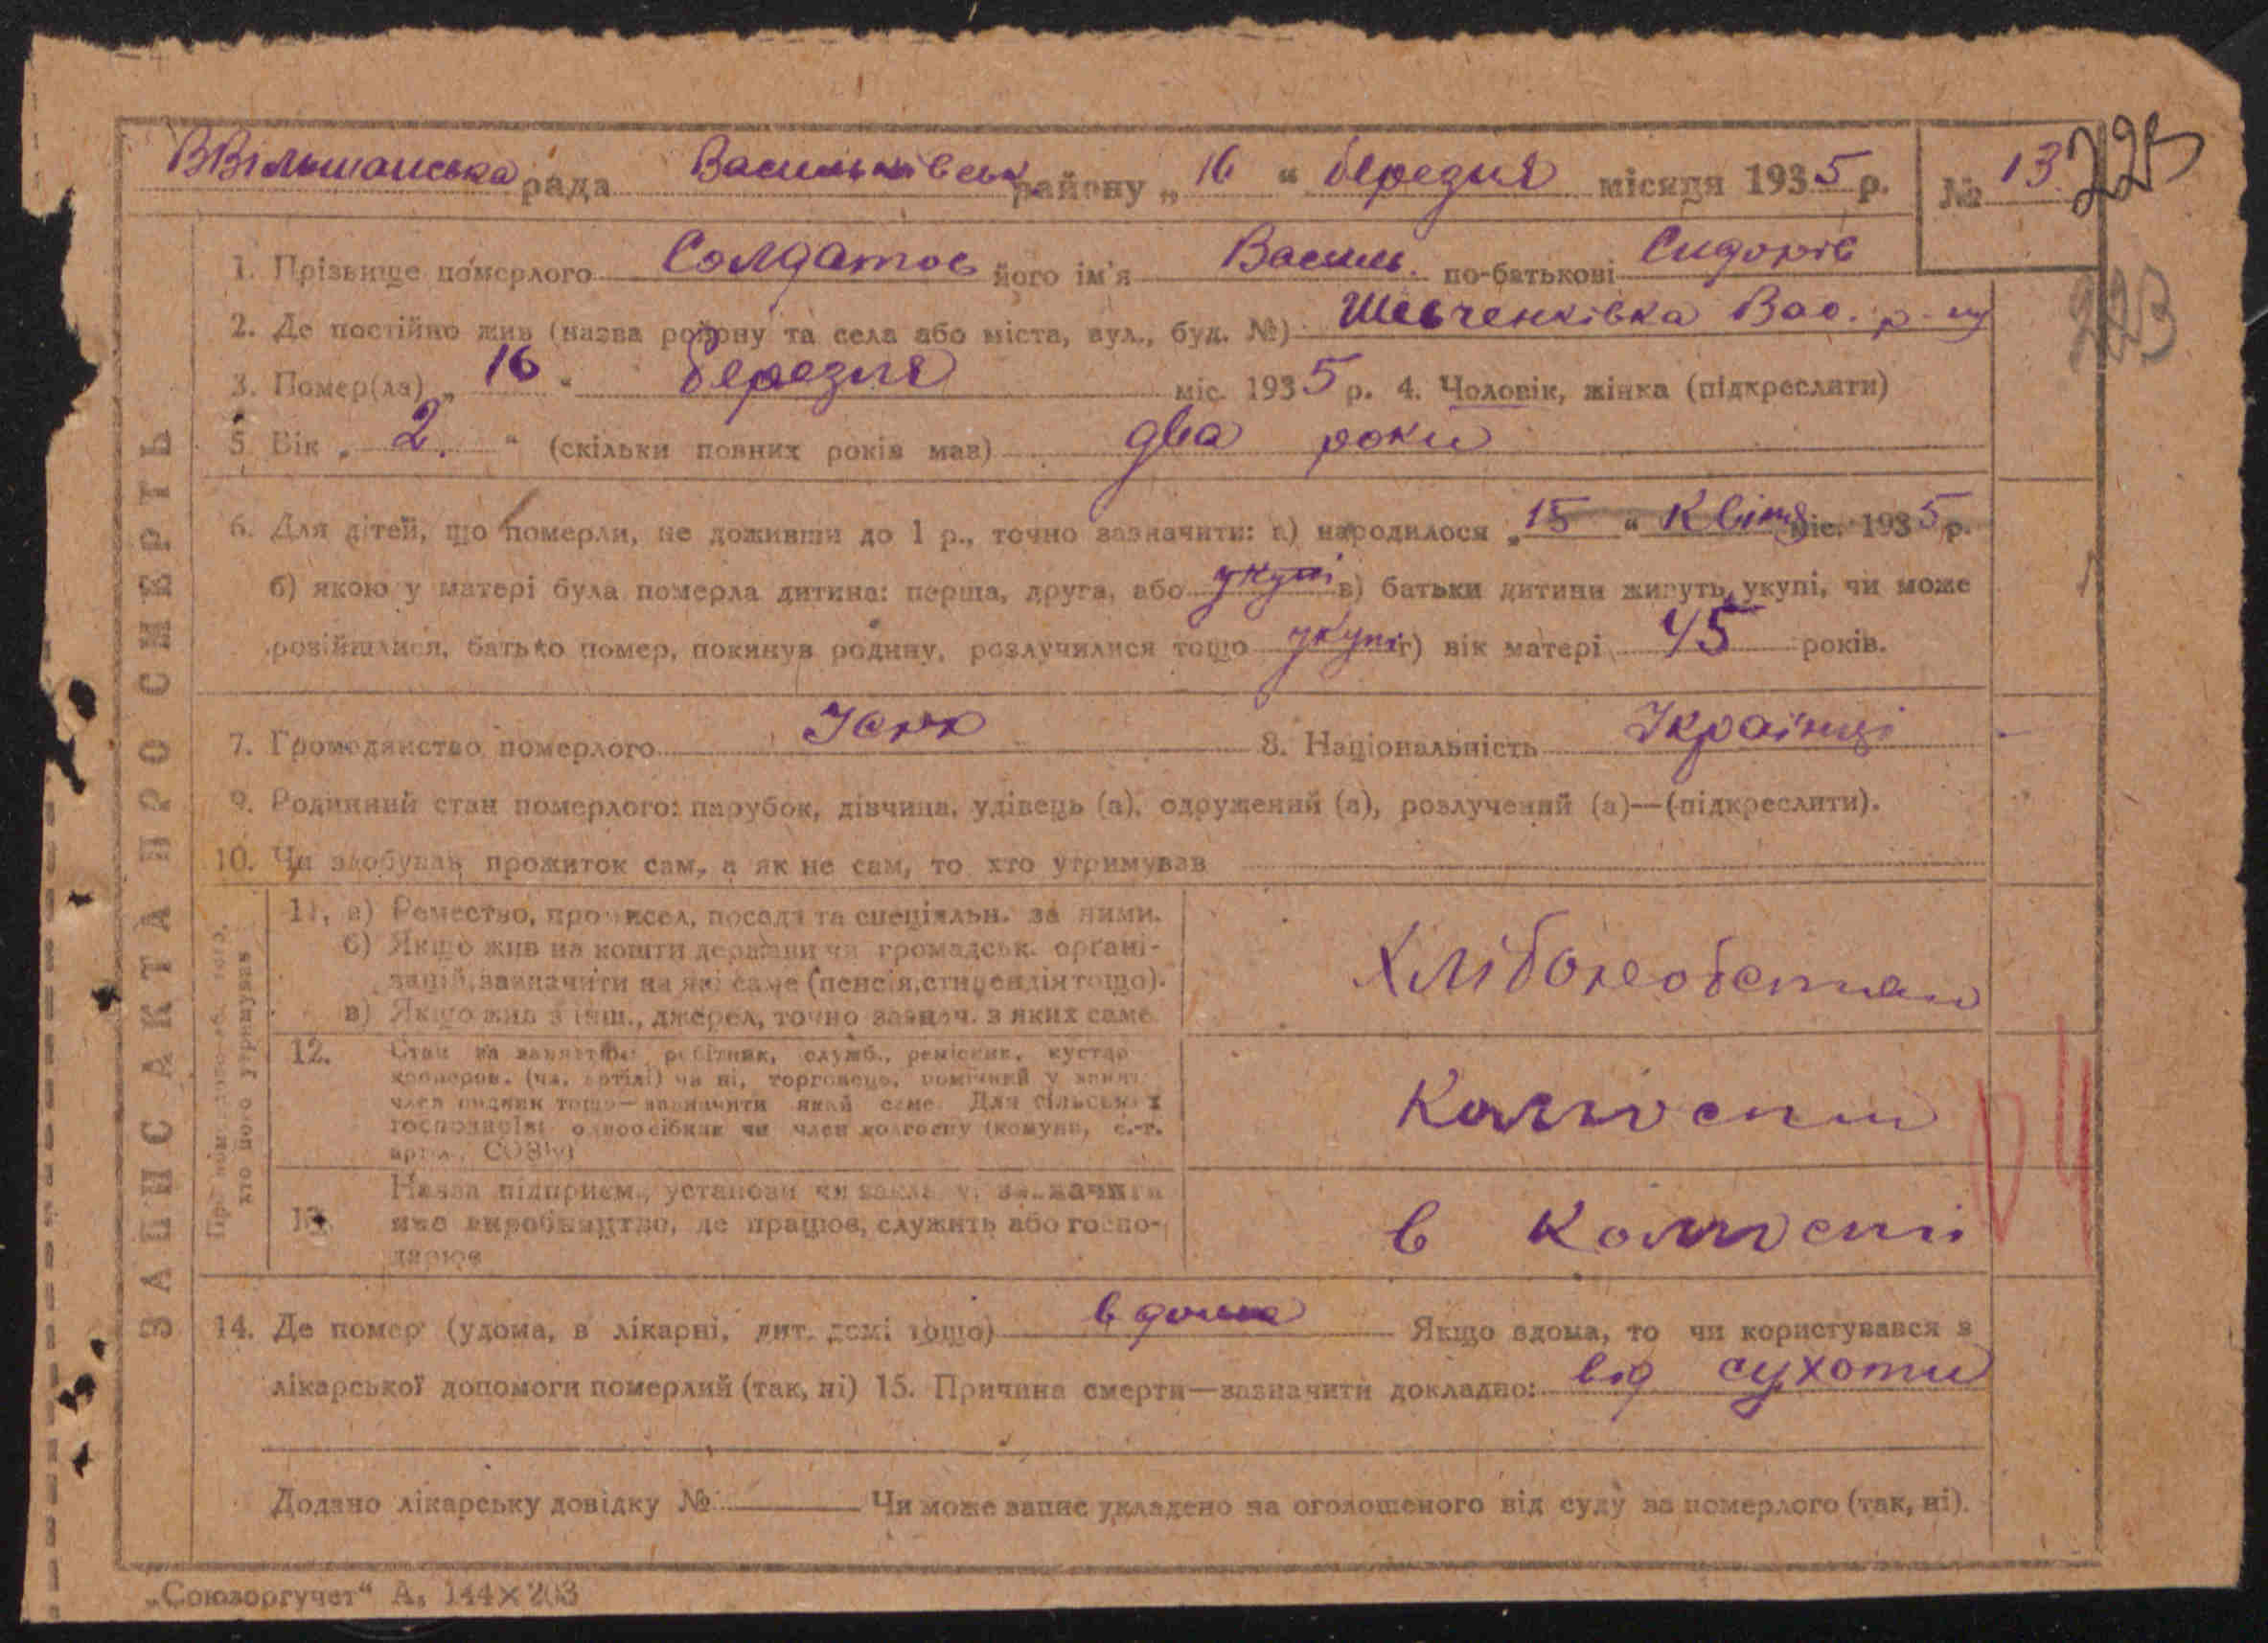 ВВільшанська рада Васильківськ району „ 16 “ березня місяця 1935 р. № 13
223
1. Прізвище померлого Солдатов його ім'я Василь по-батькові Сидорів
223
2. Де постійно жив (назва району та села або міста, вул., буд. №) Шевченківка Вас. р-ну
3. Помер(ла) „ 16 “ березня міс. 1935 р. 4. Чоловік, жінка (підкреслити)
5. Вік „ 2. “ (скільки повних років мав) два роки
6. Для дітей, що померли, не доживши до 1 р., точно зазначити: а) народилося „ 15 “ Квітня міс. 1935 р.
б) якою у матері була померла дитина: перша, друга, або укупі в) батьки дитини живуть укупі, чи може
розійшлися, батько помер, покинув родину, розлучилися тощо укупі г) вік матері 45 років.
7. Громодянство померлого УСРР 8. Національність Українці
9. Родинний стан померлого: парубок, дівчина, удівець (а), одружений (а), розлучений (а)—(підкреслити).
10. Чи здобував прожиток сам, а як не сам, то хто утримував
ЗАПИС АКТА ПРО СМЕРТЬ
кто його утримував
11, а) Ремество, промисел, посада та спеціяльн. за ними.
б) Якщо жив на кошти держави чи громадськ. органі-
зацій, зазначити на які саме (пенсія, стипендія тощо).
в) Якщо жив з інш., джерел, точно зазнач. з яких саме
12. Стан на занятті: робітник, служб., ремісник, кустар
коопров. (чл. артілі) чи ні, торговець,
член родини тощо—зазначити який саме. Для сільських
господарів: одноосібник чи член колгоспу (комуни, с.-г.
артіл., СОЗ'у)
Колгоспн
13. Назва підприєм., установи чи закладу, зазначити
яке виробництво, де працює, служить або госпо-
дарює
в колгоспі
14. Де помер (удома, в лікарні, дит. домі тощо) вдома Якщо вдома, то чи користувався з
лікарської допомоги померлий (так, ні) 15. Причина смерти—зазначити докладно: від сухоти
Додано лікарську довідку № Чи може запис укладено на оголошеного від суду за померлого (так, ні).
„Союзоргучет“ А₅ 144×203